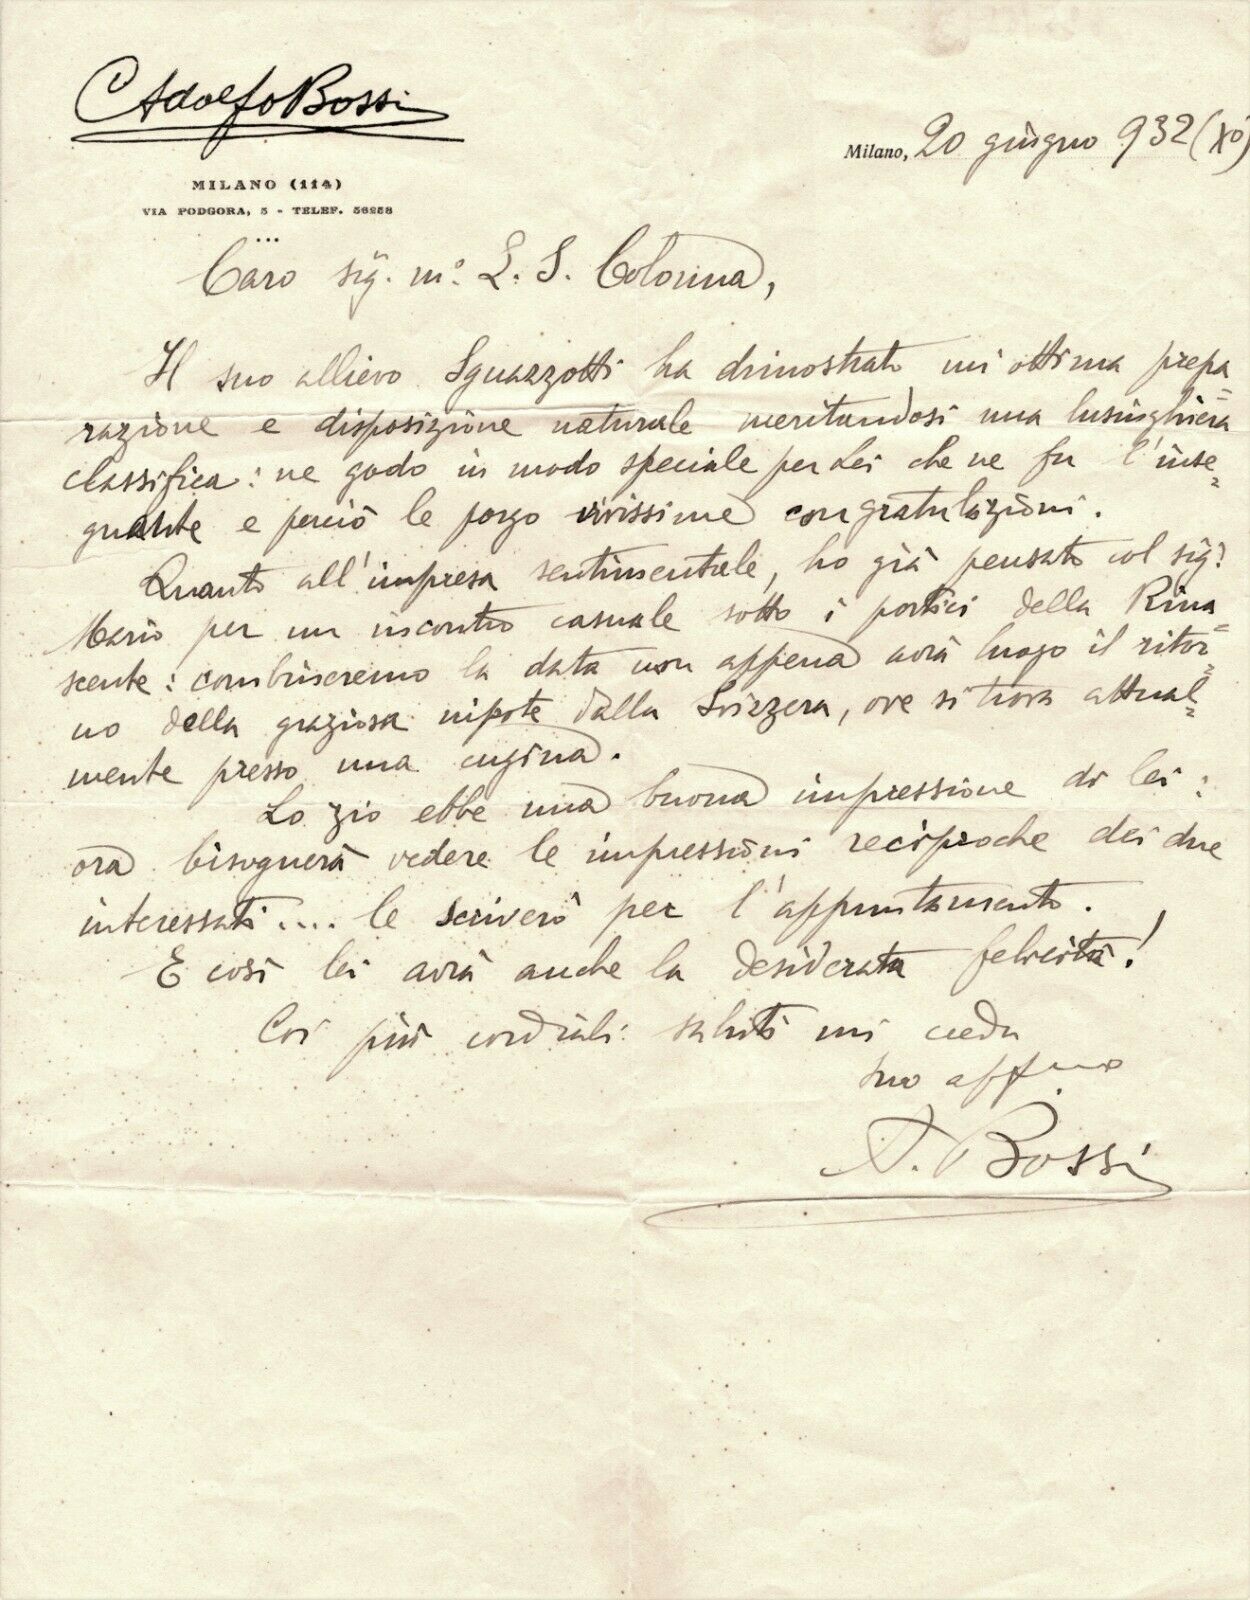 Adolfo Bossi
MILANO (114)
VIA PODGORA, 5 - TELEF. 56258
Milano, 20 giugno 932 (Xº)
Caro sig. m.º L. S. Colonna,
Il suo allievo Sguazzotti ha dimostrato un'ottima prepa=
razione e disposizione naturale meritandosi una lusinghiera
classifica: ne godo in modo speciale per Lei che ne fu l'inse=
gnante e perciò le porgo vivissime congratulazioni.
Quanto all'impresa sentimentale, ho già pensato col sig.
Mario per un incontro casuale sotto i portici della Rina=
scente: combineremo la data non appena avrà luogo il ritor=
no della graziosa nipote dalla Svizzera, ove si trova attual=
mente presso una cugina.
Lo zio ebbe una buona impressione di lei:
ora bisognerà vedere le impressioni reciproche dei due
interessati.... le scriverò per l'appuntamento.
E così lei avrà anche la desiderata felicità!
Coi più cordiali saluti mi creda
suo affmo
A. Bossi